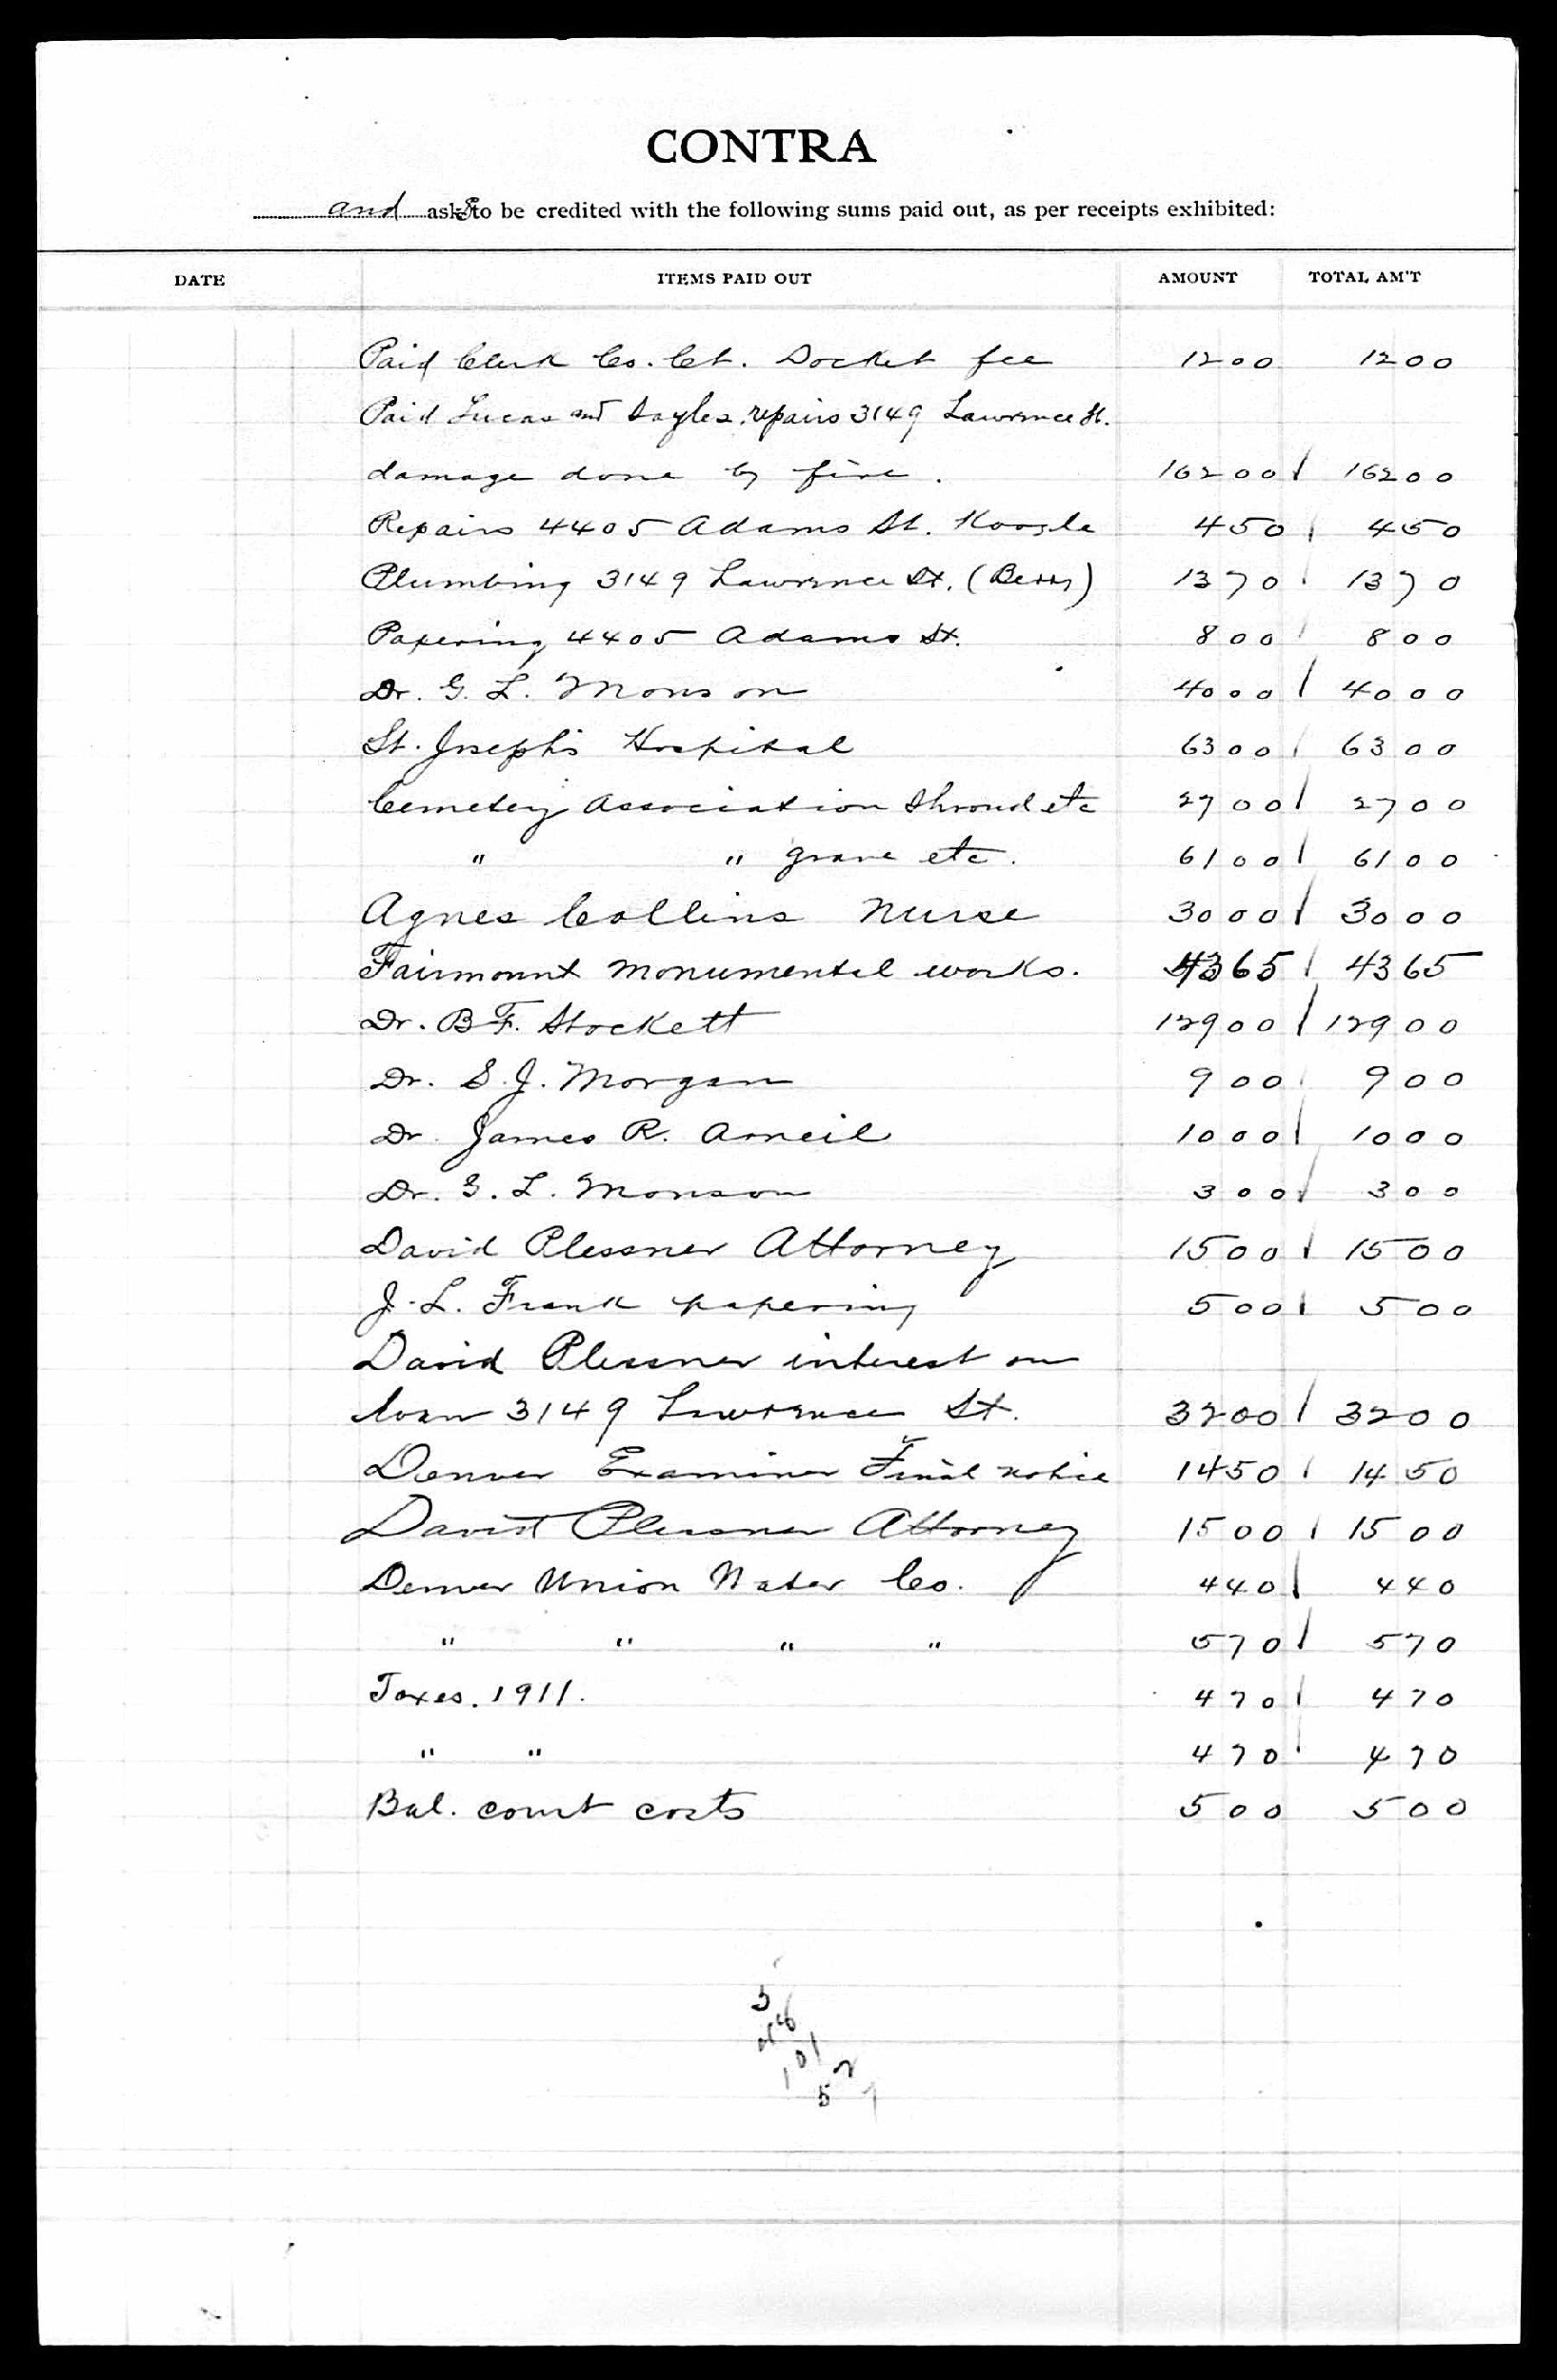 CONTRA
and asks to be credited with the following sums paid out, as per receipts exhibited:
DATE ITEMS PAID OUT AMOUNT TOTAL AM'T
Paid Clerk Co. Ct. Docket fee 12 00 12 00
Paid Lucas and repairs 3149 Lawrence St.
damage done by fire. 162 00 162 00
Repairs 4405 Adams St. 4 50 4 50
Plumbing 3149 Lawrence St. (Berry) 13 70 13 70
Papering 4405 Adams St. 8 00 8 00
Dr. G. L. Monson 40 00 40 00
St. Joseph's Hospital 63 00 63 00
Cemetery Association Shroud etc 27 00 27 00
" " grave etc. 61 00 61 00
Agnes Collins Nurse 30 00 30 00
Fairmount Monumental works. 43 65 43 65
Dr. B.F. Stockett 129 00 129 00
Dr. S. J. Morgan 9 00 9 00
Dr. James R. Arneil 10 00 10 00
Dr. G. L. Monson 3 00 3 00
David Plessner Attorney 15 00 15 00
J. L. Frank papering 5 00 5 00
David Plessner interest on
loan 3149 Lawrence St. 32 00 32 00
Denver Examiner Final notice 14 50 14 50
David Plessner Attorney 15 00 15 00
Denver Union Water Co. 4 40 4 40
" " " " 5 70 5 70
Taxes. 1911. 4 70 4 70
" " 4 70 4 70
Bal. court costs 5 00 5 00